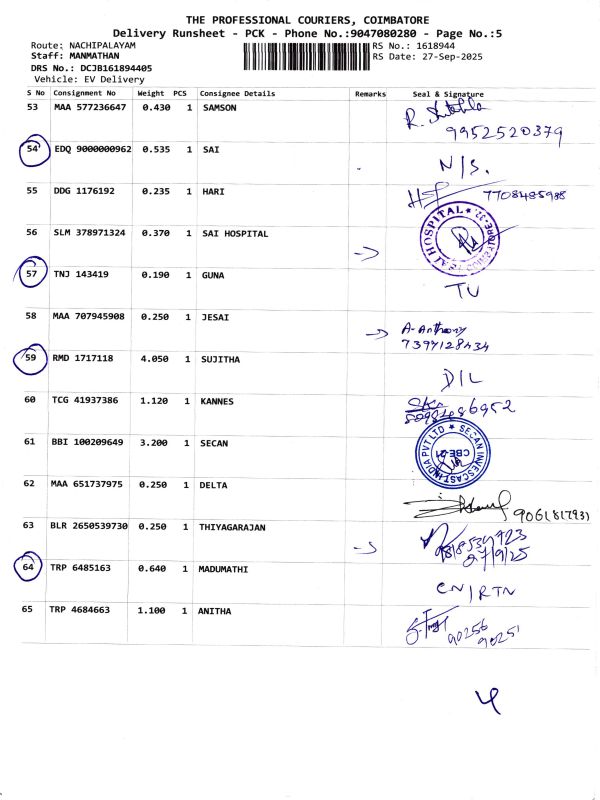 THE PROFESSIONAL COURIERS, COIMBATORE
Delivery Runsheet - PCK - Phone No.:9047080280 - Page No.:5
Route: NACHIPALAYAM RS No.: 1618944
Staff: MANMATHAN RS Date: 27-Sep-2025
DRS No.: DCJB161894405
Vehicle: EV Delivery
S No Consignment No Weight PCS Consignee Details Remarks Seal & Signature
53 MAA 577236647 0.430 1 SAMSON
9952520379
54 EDQ 9000000962 0.535 1 SAI N/S.
55 DDG 1176192 0.235 1 HARI 7708485988
56 SLM 378971324 0.370 1 SAI HOSPITAL
57 TNJ 143419 0.190 1 GUNA TU
58 MAA 707945908 0.250 1 JESAI A-Anthony
7397128434
59 RMD 1717118 4.050 1 SUJITHA D/L
60 TCG 41937386 1.120 1 KANNES
61 BBI 100209649 3.200 1 SECAN SECAN INVESCAST INDIA PVT LTD CBE-21
62 MAA 651737975 0.250 1 DELTA 9061817931
63 BLR 2650539730 0.250 1 THIYAGARAJAN
27/9/25
64 TRP 6485163 0.640 1 MADUMATHI CN/RTN
65 TRP 4684663 1.100 1 ANITHA
90256
90251
4